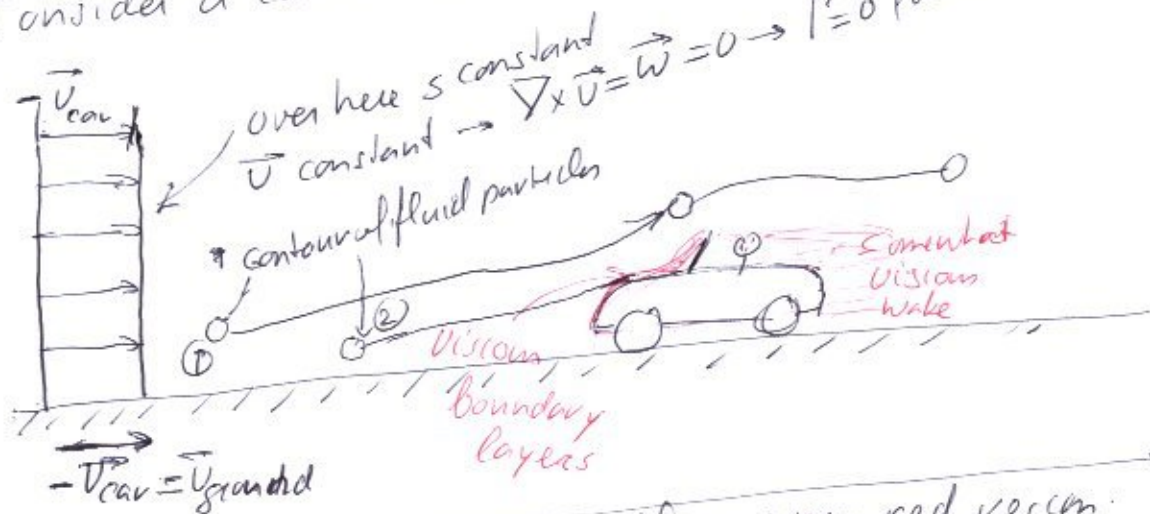 onsider a
-U⃗car
over here s constant
U⃗ constant → ∇×U⃗=W⃗=0 → Γ=0
* contour of fluid particles
①
②
Viscous
Boundary
layers
Somewhat
viscous
wake
-V⃗car = U⃗ground
red